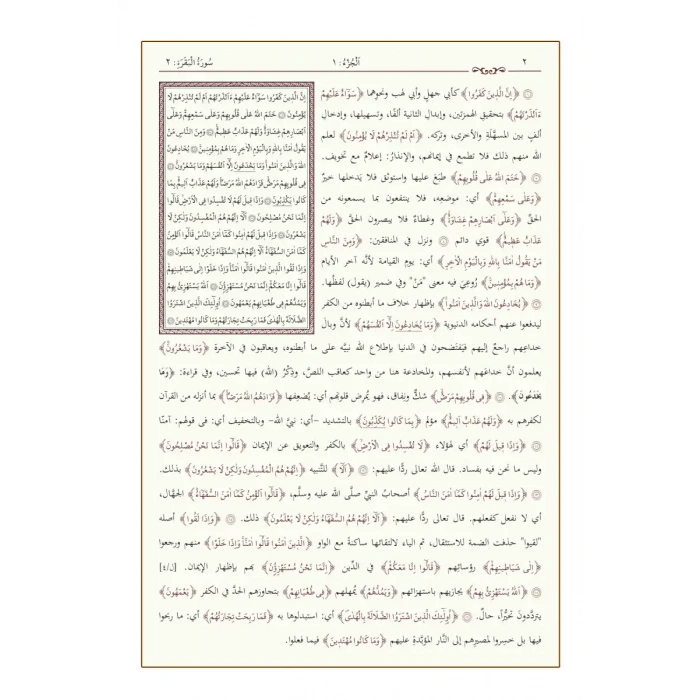 ٢
اَلْجُزْءُ: ١
سُورَةُ الْبَقَرَةِ: ٢
إِنَّ الَّذِينَ كَفَرُوا سَوَآءٌ عَلَيْهِمْ ءَاَنْذَرْتَهُمْ اَمْ لَمْ تُنْذِرْهُمْ لَا
يُؤْمِنُونَ ۝ خَتَمَ اللّٰهُ عَلٰى قُلُوبِهِمْ وَعَلٰى سَمْعِهِمْ وَعَلٰٓى
اَبْصَارِهِمْ غِشَاوَةٌ وَلَهُمْ عَذَابٌ عَظِيمٌ ۝ وَمِنَ النَّاسِ مَنْ
يَقُولُ اٰمَنَّا بِاللّٰهِ وَبِالْيَوْمِ الْاٰخِرِ وَمَا هُمْ بِمُؤْمِنِينَ ۝ يُخَادِعُونَ
اللّٰهَ وَالَّذِينَ اٰمَنُوا وَمَا يَخْدَعُونَ اِلَّٓا اَنْفُسَهُمْ وَمَا يَشْعُرُونَ ۝
فِى قُلُوبِهِمْ مَرَضٌ فَزَادَهُمُ اللّٰهُ مَرَضًا وَلَهُمْ عَذَابٌ اَلِيمٌ بِمَا
كَانُوا يَكْذِبُونَ ۝ وَاِذَا قِيلَ لَهُمْ لَا تُفْسِدُوا فِى الْاَرْضِ قَالُٓوا
اِنَّمَا نَحْنُ مُصْلِحُونَ ۝ اَلَٓا اِنَّهُمْ هُمُ الْمُفْسِدُونَ وَلٰكِنْ لَا
يَشْعُرُونَ ۝ وَاِذَا قِيلَ لَهُمْ اٰمِنُوا كَمَٓا اٰمَنَ النَّاسُ قَالُٓوا اَنُؤْمِنُ
كَمَٓا اٰمَنَ السُّفَهَٓاءُ اَلَٓا اِنَّهُمْ هُمُ السُّفَهَٓاءُ وَلٰكِنْ لَا يَعْلَمُونَ ۝
وَاِذَا لَقُوا الَّذِينَ اٰمَنُوا قَالُٓوا اٰمَنَّا وَاِذَا خَلَوْا اِلٰى شَيَاطِينِهِمْ
قَالُٓوا اِنَّا مَعَكُمْ اِنَّمَا نَحْنُ مُسْتَهْزِؤُنَ ۝ اَللّٰهُ يَسْتَهْزِئُ بِهِمْ
وَيَمُدُّهُمْ فِى طُغْيَانِهِمْ يَعْمَهُونَ ۝ اُولٰٓئِكَ الَّذِينَ اشْتَرَوُا
الضَّلَالَةَ بِالْهُدٰى فَمَا رَبِحَتْ تِجَارَتُهُمْ وَمَا كَانُوا مُهْتَدِينَ ۝
۝ ﴿إِنَّ الَّذِينَ كَفَرُوا﴾ كأبي جهلٍ وأبي لهب ونحوِهما ﴿سَوَآءٌ عَلَيْهِمْ
ءَاَنْذَرْتَهُمْ﴾ بتحقيق الهمزتين، وإبدال الثانية ألفًا، وتسهيلها، وإدخالِ
ألفٍ بين المسهَّلة والأخرى، وتركه. ﴿اَمْ لَمْ تُنْذِرْهُمْ لَا يُؤْمِنُونَ﴾ لعلم
الله منهم ذلك فلا تطمع في إيمانهم، والإنذارُ: إعلامٌ مع تخويف.
۝ ﴿خَتَمَ اللّٰهُ عَلٰى قُلُوبِهِمْ﴾ طَبَعَ عليها واستوثق فلا يَدخلها خيرٌ
﴿وَعَلٰى سَمْعِهِمْ﴾ أي: موضعِه، فلا ينتفعون بما يسمعونه من
الحقِّ ﴿وَعَلٰٓى اَبْصَارِهِمْ غِشَاوَةٌ﴾ وغطاءٌ فلا يبصرون الحقَّ ﴿وَلَهُمْ
عَذَابٌ عَظِيمٌ﴾ قوي دائم ۝ ونزل في المنافقين: ﴿وَمِنَ النَّاسِ
مَنْ يَقُولُ اٰمَنَّا بِاللّٰهِ وَبِالْيَوْمِ الْاٰخِرِ﴾ أي: يومِ القيامة لأنَّه آخر الأيام
﴿وَمَا هُمْ بِمُؤْمِنِينَ﴾ رُوعِيَ فيه معنى "مَنْ" وفي ضمير (يقول) لفظُها.
۝ ﴿يُخَادِعُونَ اللّٰهَ وَالَّذِينَ اٰمَنُوا﴾ بإظهار خلاف ما أبطنوه من الكفر
ليدفعوا عنهم أحكامه الدنيوية ﴿وَمَا يُخَادِعُونَ اِلَّٓا اَنْفُسَهُمْ﴾ لأنَّ وبالَ
خداعِهم راجعٌ إليهم فيَفتضحون في الدنيا بإطلاع الله نبيَّه على ما أبطنوه، ويعاقبون في الآخرة ﴿وَمَا يَشْعُرُونَ﴾
يعلمون أنَّ خداعَهم لأنفسهم، والمخادعة هنا من واحد كعاقب اللصَّ، وذِكْرُ (الله) فيها تحسين، وفي قراءة: ﴿وَمَا
يَخدَعُونَ﴾. ۝ ﴿فِى قُلُوبِهِمْ مَرَضٌ﴾ شكٌّ ونِفاق، فهو يُمرِض قلوبَهم أي: يُضعِفها ﴿فَزَادَهُمُ اللّٰهُ مَرَضًا﴾ بما أنزله من القرآن
لكفرهم به ﴿وَلَهُمْ عَذَابٌ اَلِيمٌ﴾ مؤلمٌ ﴿بِمَا كَانُوا يُكَذِّبُونَ﴾ بالتشديد -أي: نبيَّ الله- وبالتخفيف أي: في قولهم: آمنَّا
۝ ﴿وَاِذَا قِيلَ لَهُمْ﴾ أي لهؤلاء ﴿لَا تُفْسِدُوا فِى الْاَرْضِ﴾ بالكفر والتعويق عن الإيمان ﴿قَالُٓوا اِنَّمَا نَحْنُ مُصْلِحُونَ﴾
وليس ما نحن فيه بفساد. قال الله تعالى ردًّا عليهم: ۝ ﴿اَلَٓا﴾ للتَّنبيه ﴿اِنَّهُمْ هُمُ الْمُفْسِدُونَ وَلٰكِنْ لَا يَشْعُرُونَ﴾ بذلك.
۝ ﴿وَاِذَا قِيلَ لَهُمْ اٰمِنُوا كَمَٓا اٰمَنَ النَّاسُ﴾ أصحابُ النبيِّ صلَّى الله عليه وسلَّم، ﴿قَالُٓوا اَنُؤْمِنُ كَمَٓا اٰمَنَ السُّفَهَٓاءُ﴾ الجهَّال،
أي لا نفعل كفعلهم. قال تعالى ردًّا عليهم: ﴿اَلَٓا اِنَّهُمْ هُمُ السُّفَهَٓاءُ وَلٰكِنْ لَا يَعْلَمُونَ﴾ ذلك. ۝ ﴿وَاِذَا لَقُوا﴾ أصله
"لقيوا" حذفت الضمة للاستثقال، ثم الياء لالتقائها ساكنةً مع الواو ﴿الَّذِينَ اٰمَنُوا قَالُٓوا اٰمَنَّا وَاِذَا خَلَوْا﴾ منهم ورجعوا
﴿اِلٰى شَيَاطِينِهِمْ﴾ رؤسائِهم ﴿قَالُٓوا اِنَّا مَعَكُمْ﴾ في الدِّين ﴿اِنَّمَا نَحْنُ مُسْتَهْزِؤُنَ﴾ بهم بإظهار الإيمان. [ل/٤]
۝ ﴿اَللّٰهُ يَسْتَهْزِئُ بِهِمْ﴾ يجازيهم باستهزائهم ﴿وَيَمُدُّهُمْ﴾ يُمهلهم ﴿فِى طُغْيَانِهِمْ﴾ بتجاوزهم الحدَّ في الكفر ﴿يَعْمَهُونَ﴾
يتردَّدون تَحَيُّرًا، حالٌ. ۝ ﴿اُولٰٓئِكَ الَّذِينَ اشْتَرَوُا الضَّلَالَةَ بِالْهُدٰى﴾ أي: استبدلوها به ﴿فَمَا رَبِحَتْ تِجَارَتُهُمْ﴾ أي: ما ربحوا
فيها بل خسِروا لمصيرِهم إلى النَّار المؤبَّدةِ عليهم ﴿وَمَا كَانُوا مُهْتَدِينَ﴾ فيما فعلوا.